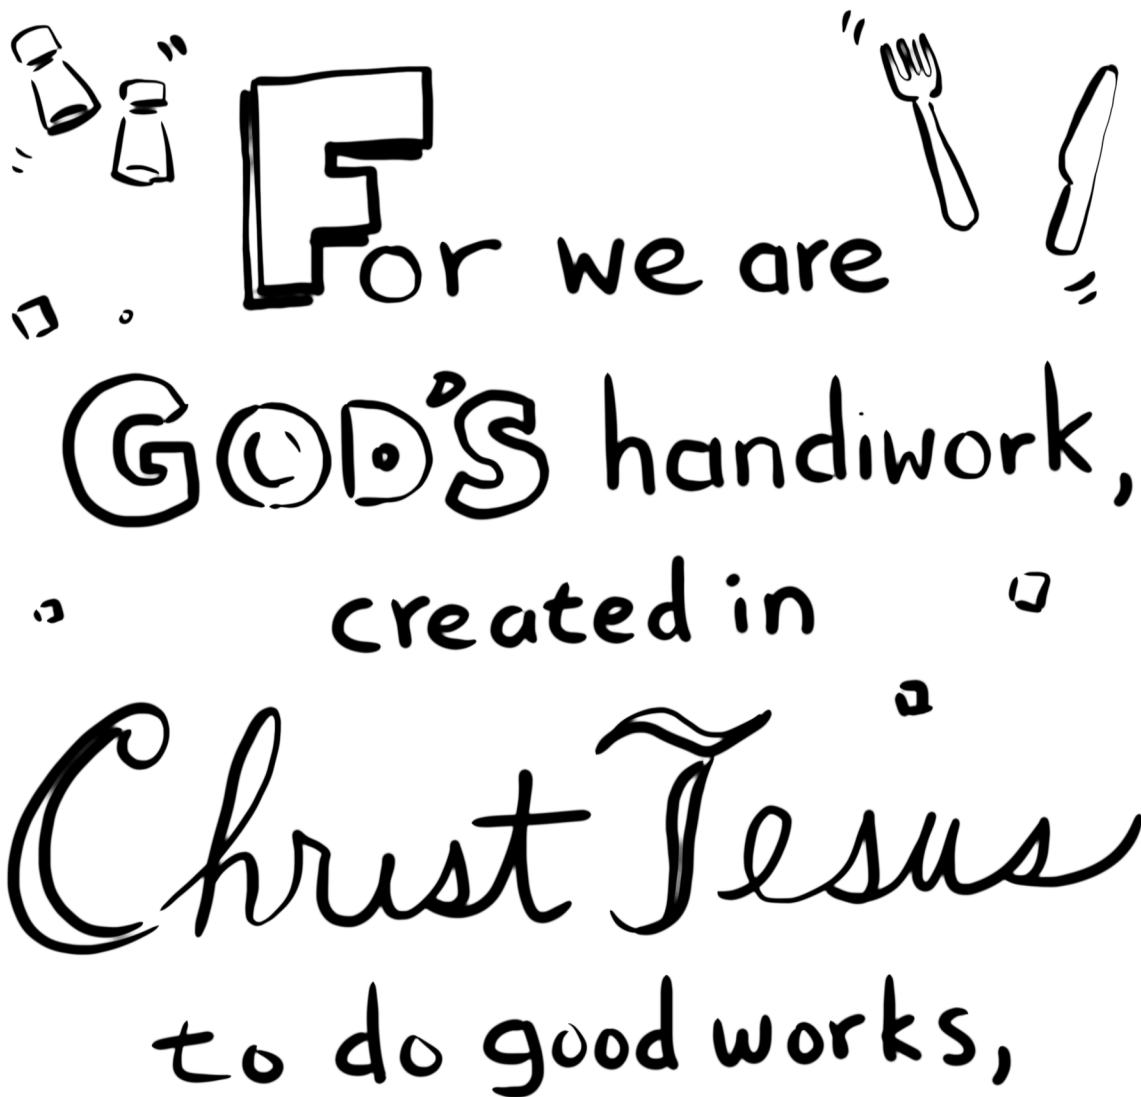 For we are
GOD'S handiwork,
created in
Christ Jesus
to do good works,